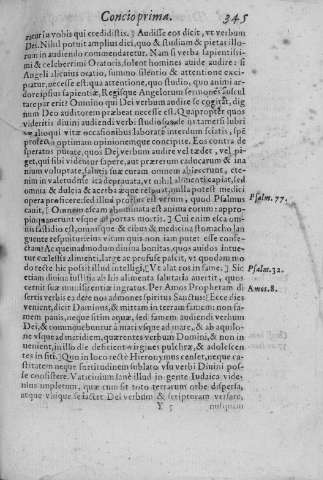 Concio prima. 345
ratur in vobis qui credidistis. ] Audisse eos dicit, vt verbum
Dei. Nihil potuit amplius dici, quo & studium & pietas illo-
rum in audiendo commendaretur. Nam si verba sapientissi-
mi & celeberrimi Oratoris, solent homines auide audire: si
Angeli alicuius oratio, summo silentio & attentione exci-
piatur, necesse est: qua attentione, quo studio, quo animi ar-
dore ipsius sapientiæ, Regisque Angelorum sermones auscul
tare par erit? Omnino qui Dei verbum audire se cogitat, dig
num Deo auditorem præbeat necesse est. Quapropter quos
videritis diuini audiendi verbi studiosos, de ijs tametsi lubri
cæ alioqui vitæ occasionibus laborare interdum sciatis, spē
protecto optimam opinionemque concipite. Eos contra de
speratos putate, quos Dei verbum audire vel tædet, vel pi-
get, qui sibi videntur sapere, aut præterum caducarum & ina
nium voluptate, salutis suæ curam omnem abijecerunt, ete-
nim in valetudine ita deprauata, vt nihil alimenti capiat, sed
omnia & dulcia & acerba æque respuat, nulla potest medici
opera proficere: sed illud potius est verum, quod Psalmus Psalm. 77.
canit, [ Omnem escam abominata est anima eorum: appro-
pinquauerunt vsque ad portas mortis. ] Cui enim esca om-
nis fastidio est, omnisque & cibus & medicina stomacho lan
guente respuitur: is vitam quis non iam putet esse confe-
ctam? Ac quemadmodum diuina bonitas, quos auidos intue-
tur cœlestis alimenti, large ac profuse pascit, vt quodam mo
do recte hic possit illud intelligi, [ Vt alat eos in fame. ] Sic Psalm. 32.
etiam diuina iustitia ab his alimenta salutaria auertit, quos
cernit suæ munificentiæ ingratos. Per Amos Prophetam di Amos. 8.
sertis verbis ea de re nos admonet spiritus Sanctus: [ Ecce dies
venient, dicit Dominus, & mittam in terram famem: non fa-
mem panis, neque sitim aquæ, sed famem audiendi verbum
Dei, & commouebuntur à mari vsque ad mare, & ab aquilo-
ne vsque ad meridiem, quærentes verbum Domini, & non in
uenient, in illo die deficient virgines pulchræ, & adolescen-
tes in siti. ] Quo in loco recte Hieronymus censet, neque ca-
stitatem neque fortitudinem sublato vsu verbi Diuini pos-
se consistere. Vaticinium sane illud in gente Iudaica vide-
mus impletum, quæ cum sit toto terrarum orbe dispersa,
atque vbique se iactet Dei verbum & scripturam versare,
Y 5 nusquam